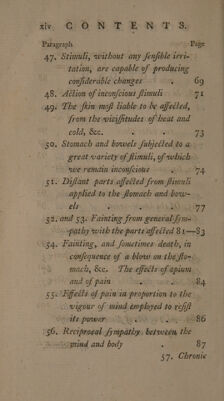 xiv CONTENTS.
Paragraph Page
47. Stimuli, without any ſenſible irri-
tation, are capable of producing
conſiderable changes . 69
48. Action of inconſcious ſtimuli 71
49. The ſkin moſt liable to be affected,
from the viciſſitudes of heat and
cold, &c. . . . 73
50. Stomach and bowels ſubjected to a
great variety of ſtimuli, of which
we remain inconſcious . 74
51. Diſtant parts affected from ſtimuli
applied to the ſtomach and bow-
els . . . 77
52. and 53. Fainting from general ſym-
pathy with the parts affected 81—83
54. Fainting, and ſometimes death, in
conſequence of a blow on the ſto-
mach, &c. The effects of opium
and of pain . . 84
55. Effects of pain in proportion to the
vigour of mind employed to reſiſt
its power . . 86
56. Reciprocal ſympathy between the
mind and body . 87
57. Chronic